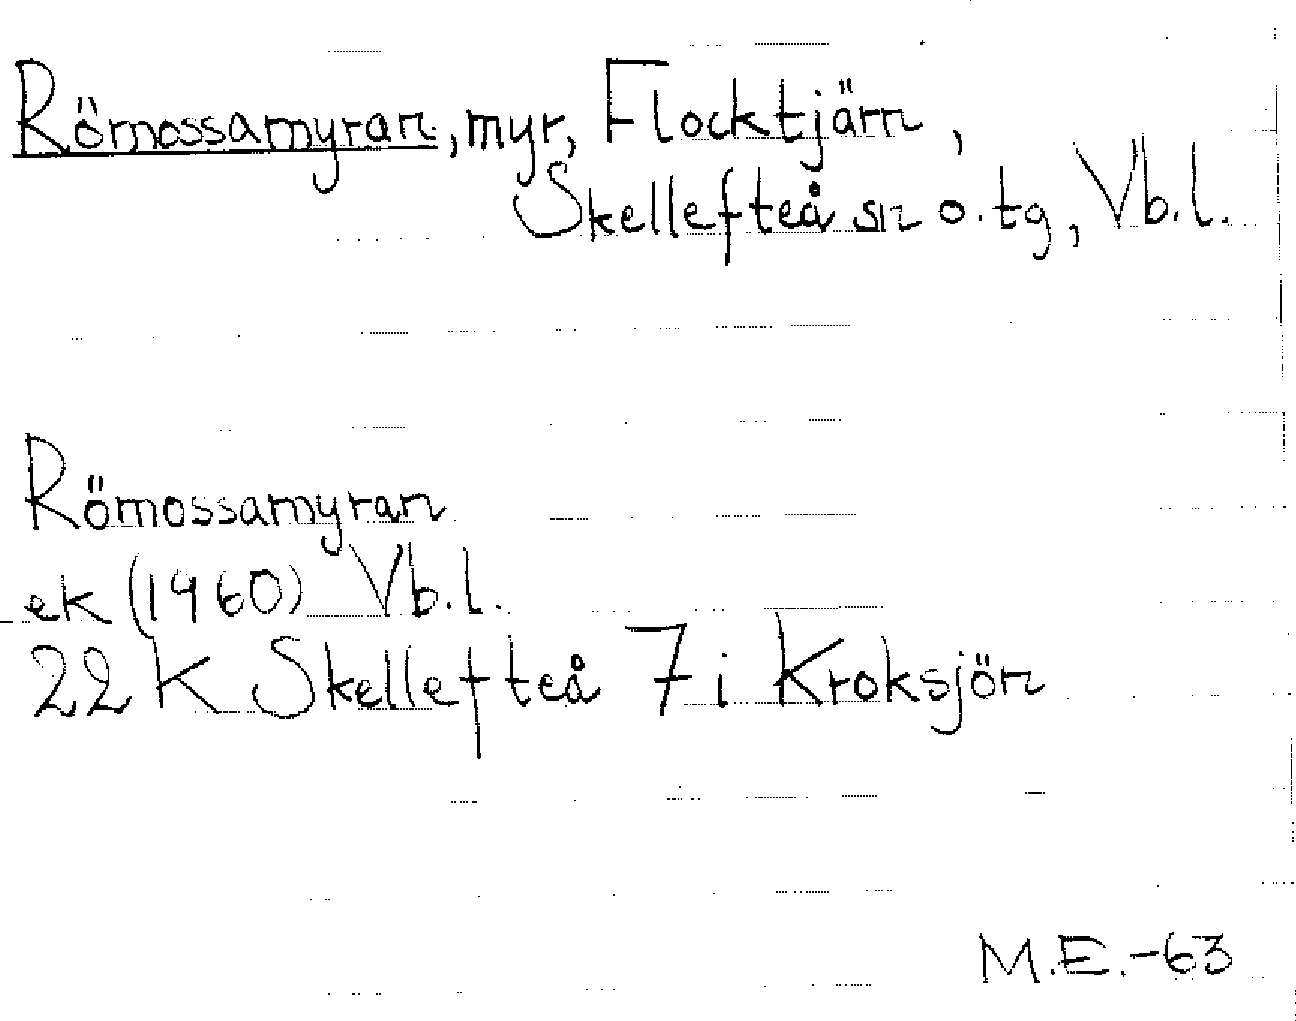 Römossamyran, myr, Flocktjärn,
Skellefteå sn o. tg, Vb. l.
Römossamyran
ek (1960) Vb. l.
22 K Skellefteå 7 i Kroksjön
M.E.-63